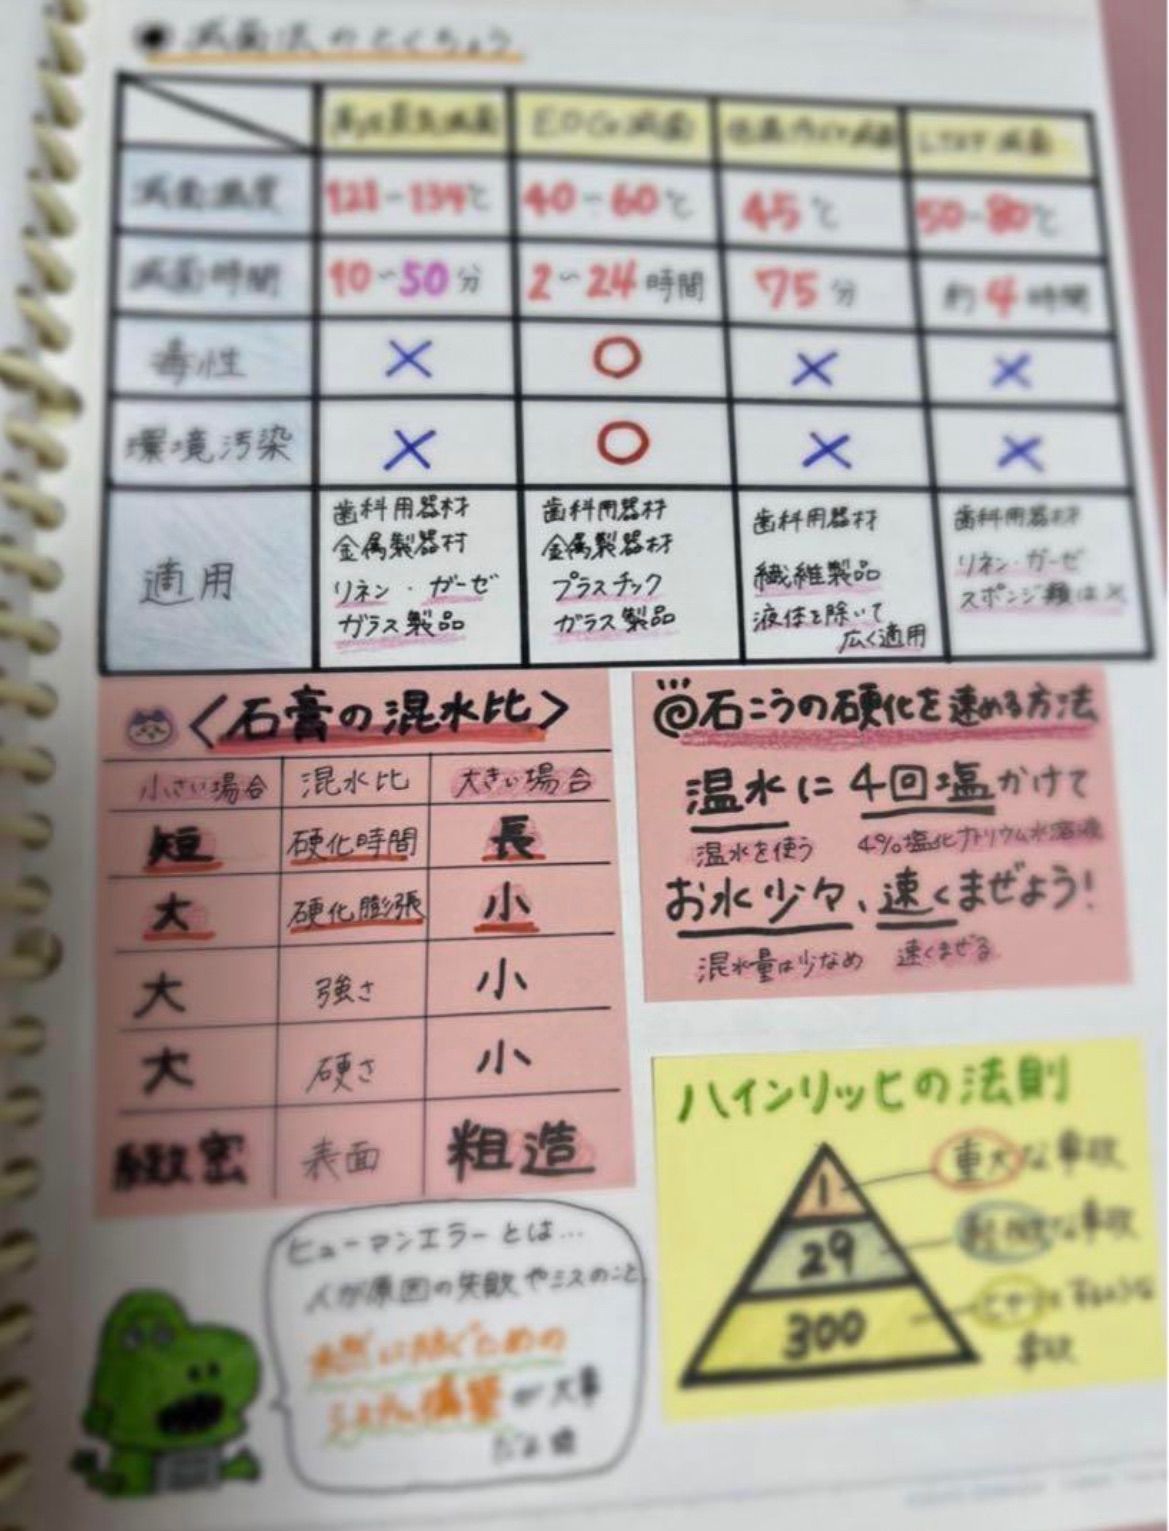 滅菌法のとくちょう
高圧蒸気滅菌 EOGガス滅菌 低温プラズマ滅菌 LTSF滅菌
滅菌温度 121~134℃ 40~60℃ 45℃ 50~80℃
滅菌時間 10~50分 2~24時間 75分 約4時間
毒性 × ○ × ×
環境汚染 × ○ × ×
適用
歯科用器材
金属製器材
リネン・ガーゼ
ガラス製品
歯科用器材
金属製器材
プラスチック
ガラス製品
歯科用器材
繊維製品
液体を除いて
広く適用
歯科用器材
リネン・ガーゼ
スポンジ類は×
<石膏の混水比>
小さい場合 混水比 大きい場合
短 硬化時間 長
大 硬化膨張 小
大 強さ 小
大 硬さ 小
緻密 表面 粗造
石こうの硬化を速める方法
温水に4回塩かけて
温水を使う 4%塩化ナトリウム水溶液
お水少々、速くまぜよう!
混水量は少なめ 速くまぜる
ハインリッヒの法則
1 重大な事故
29 軽微な事故
300 ヒヤッとするような
事故
ヒューマンエラーとは…
人が原因の失敗やミスのこと
未然に防ぐための
システム構築が大事
だよ